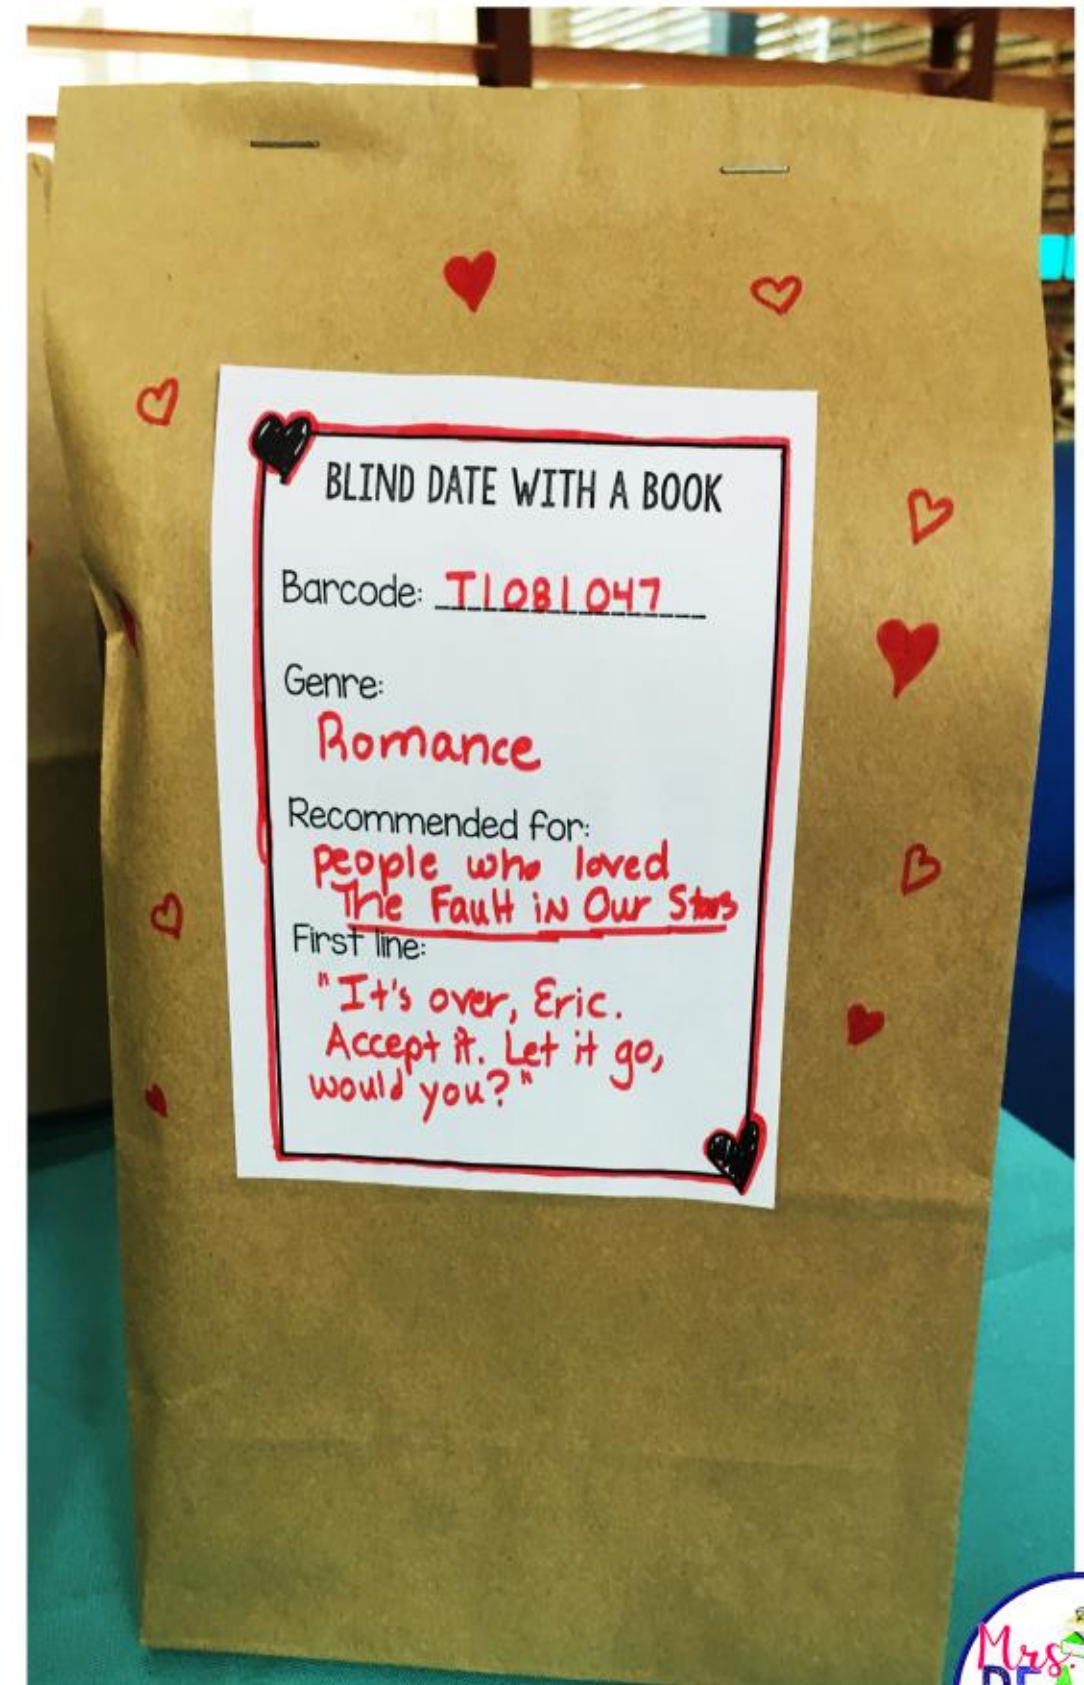 BLIND DATE WITH A BOOK
Barcode: T1081047
Genre:
Romance
Recommended for:
people who loved
The Fault in Our Stars
First line:
"It's over, Eric.
Accept it. Let it go,
would you?"
Mrs.